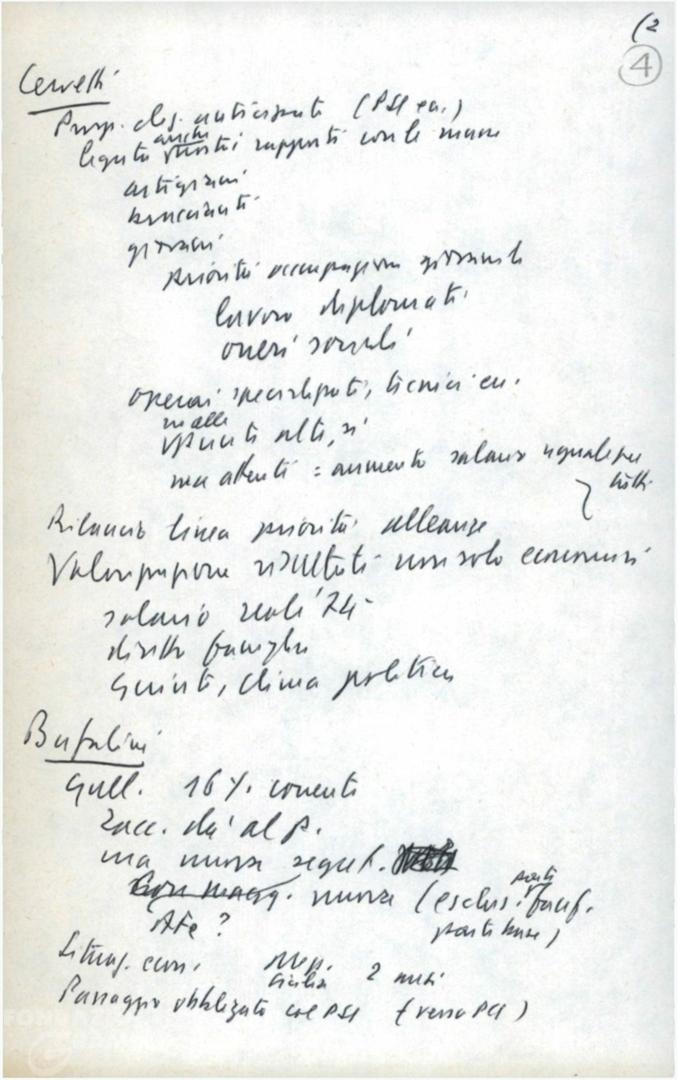 (2
4
Cervetti
Prosp. eleg. anticipate (PSI ecc.)
legata anche nostri rapporti con le masse
artigiani
braccianti
giovani
priorità occupazione giovanile
lavoro diplomati
oneri sociali
operai specializzati, tecnici ecc.
alti, sì
ma attenti = aumento salario uguale per
tutti
Rilancio linea priorità alleanze
Valorizzazione risultati non solo economici
salario reale '74
diritto famiglia
Giunte, clima politico
Bufalini
Gull. 16% correnti
Zacc. dà al p.
ma nuova segret.
nuova (esclus. fanf.
parte base)
Situaz. econ. 2 mesi
Sicilia
Passaggio obbligato col PSI (verso PCI)